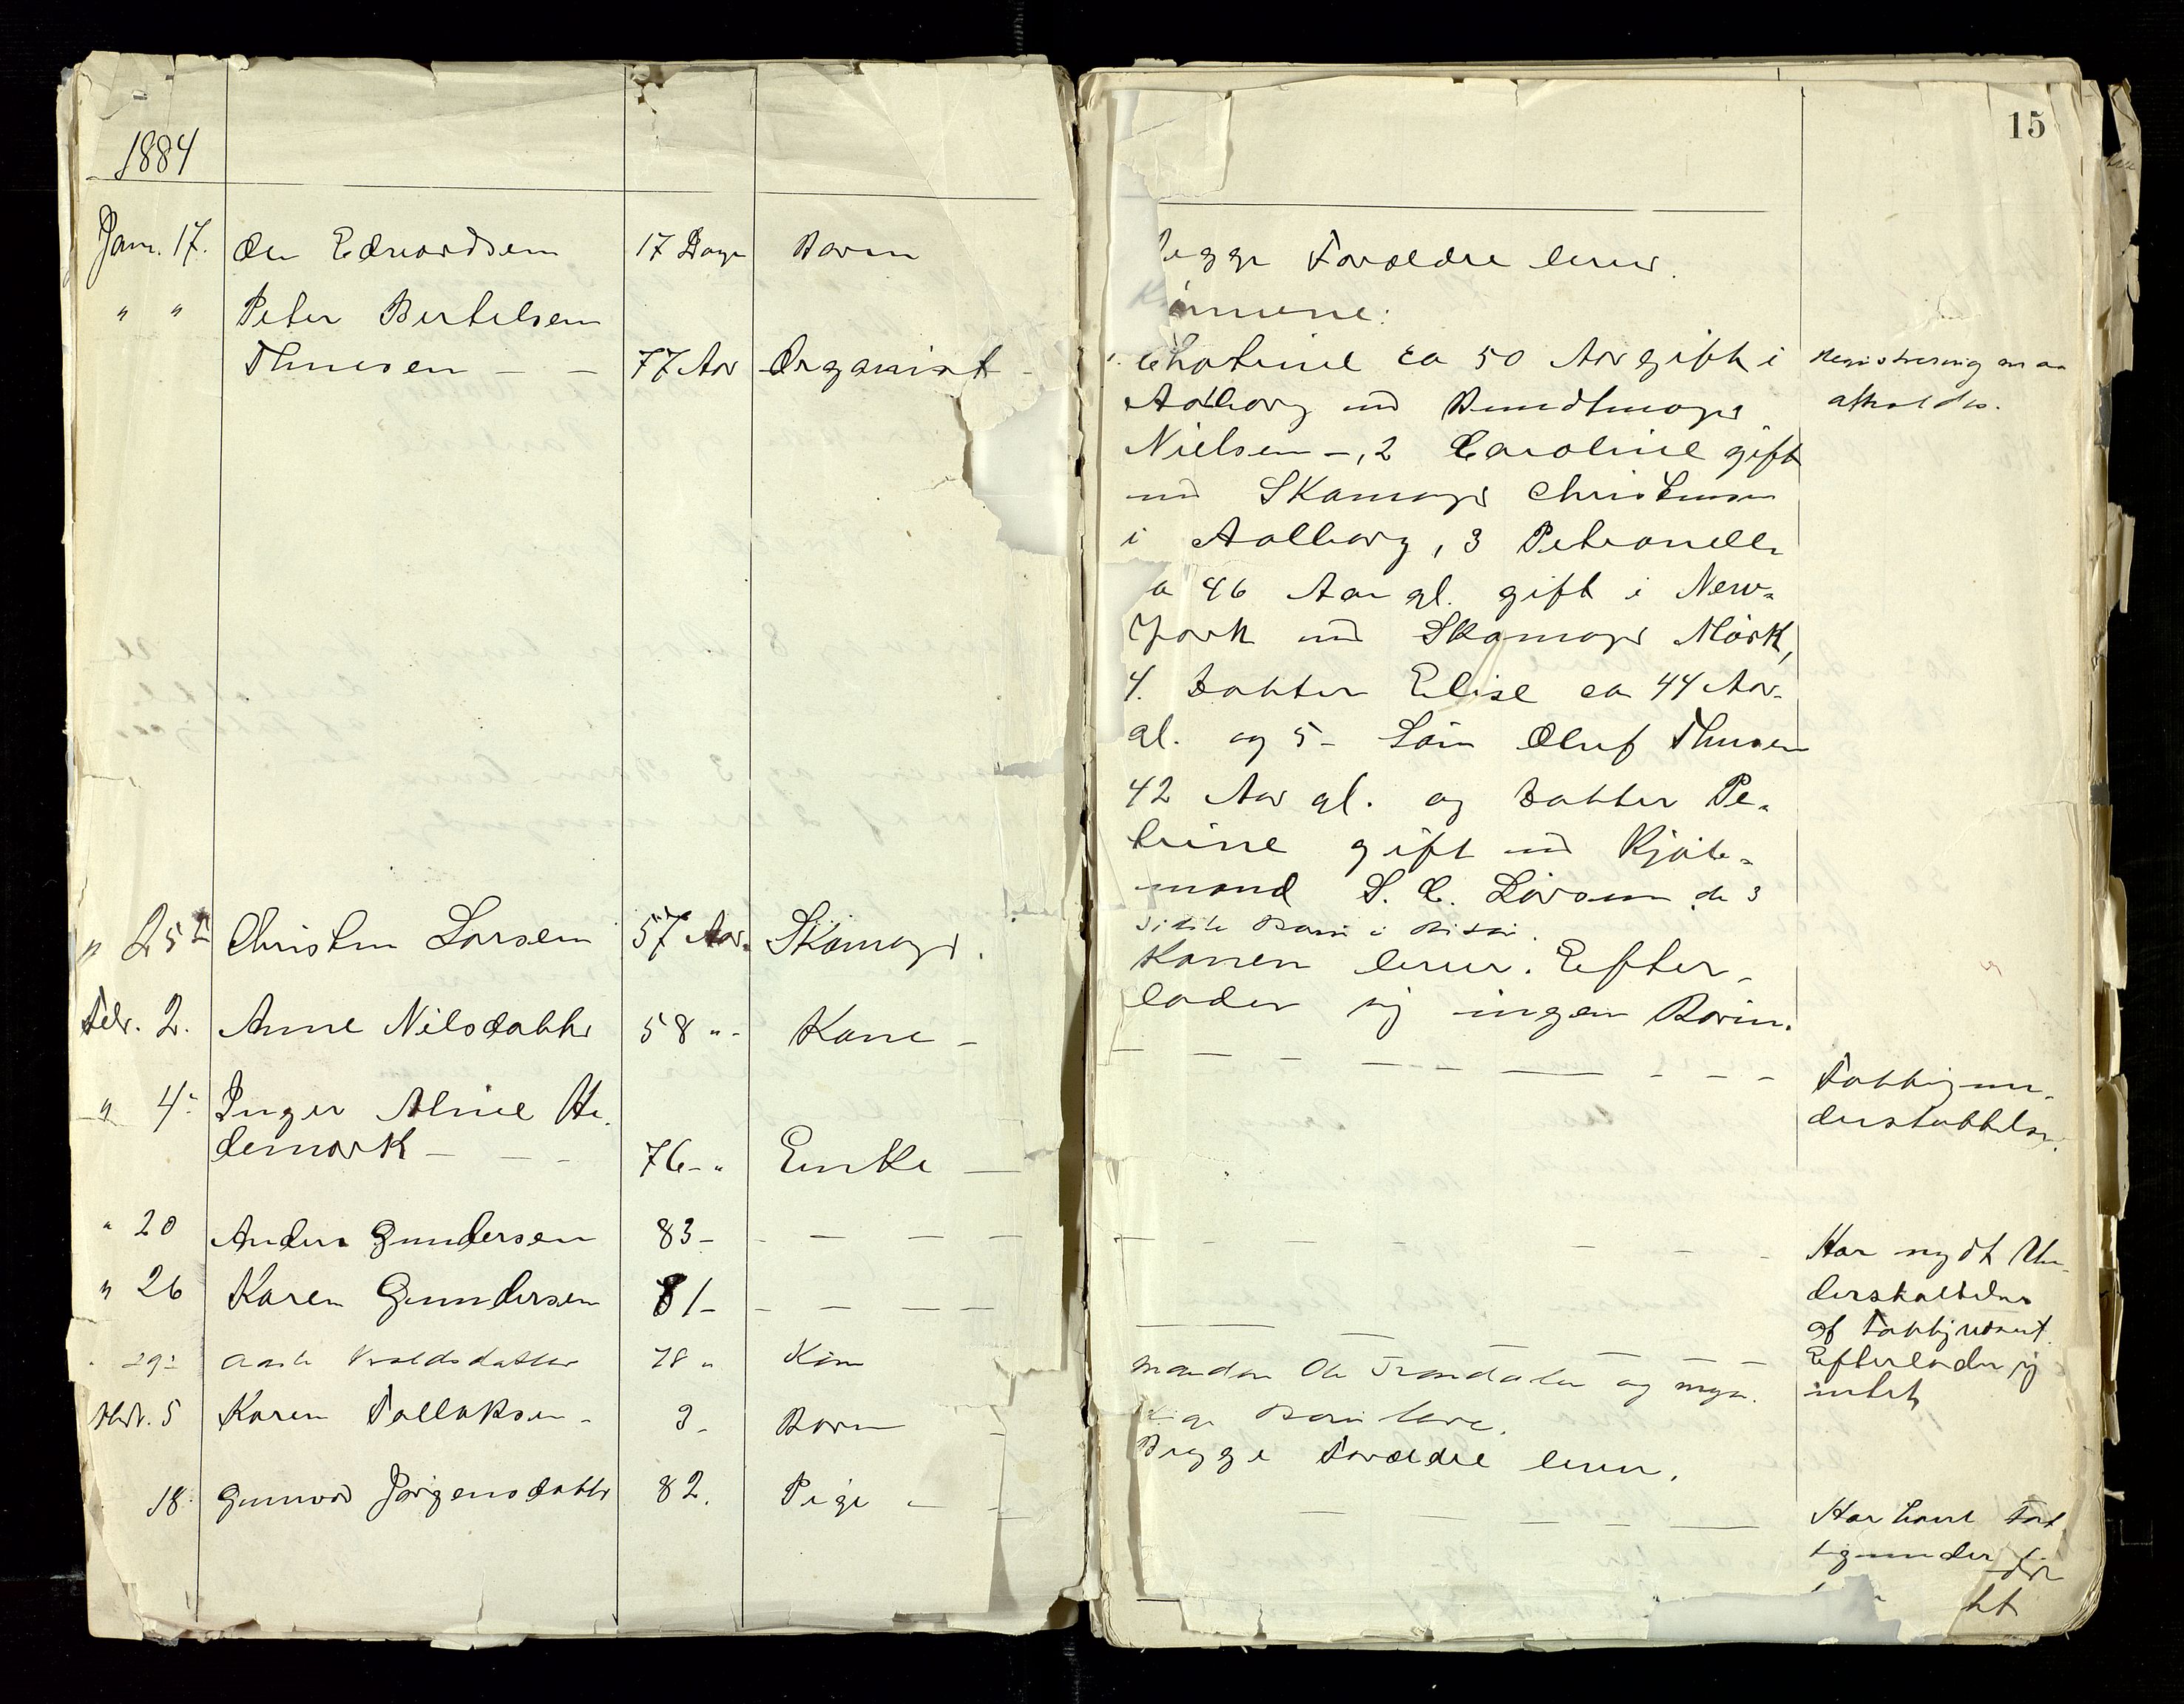 1884
Janr. 17. Ole Edvardsen 17 Dage Barn
" " Peter Bertelsen
Thuesen - - 77 Aar Organist -
" 25de Christen Larsen 57 Aar. Skomager.
Febr. 2. Anne Nilsdatter 58 "- Kone -
" 4- Inger Aline He-
demark - - - 76-" Enke -
" 20 Anders Gundersen 83- - - - -
" 26 Karen Gundersen 81- - - - -
29- Aaste datter 78 " Kone
Mar. 5 Karen Tallaksen - 3- Barn
18. Gunvor Jørgensdatter 82. Pige - -
15
egge Forældre lever.
1. Chatrine ca 50 Aar gift i
Aalborg med Bundtmager
Nielsen -, 2 Caroline gift
med Skomager Christensen
i Aalborg, 3 Petronelle
a 46 Aar gl. gift i New-
York med Skomager Mørk,
4. Datter Elise ca 44 Aar
gl. og 5- Søn Oluf Thuesen
42 Aar gl. og Datter Pe-
trine gift med Kjøb-
mand S. C. Larsen de 3
sidste Børn i Risør.
Konen lever. Efter-
lader sig ingen Børn.
Manden Ole og myn-
dige Børn leve.
Begge Forældre lever.
Registrering maa
afholdes.
Fattigun-
derstøttelse.
Har nydt Un-
derstøttelse
af Fattigvæsenet.
Efterlader sig
intet
Har havt Fat-
tigunder